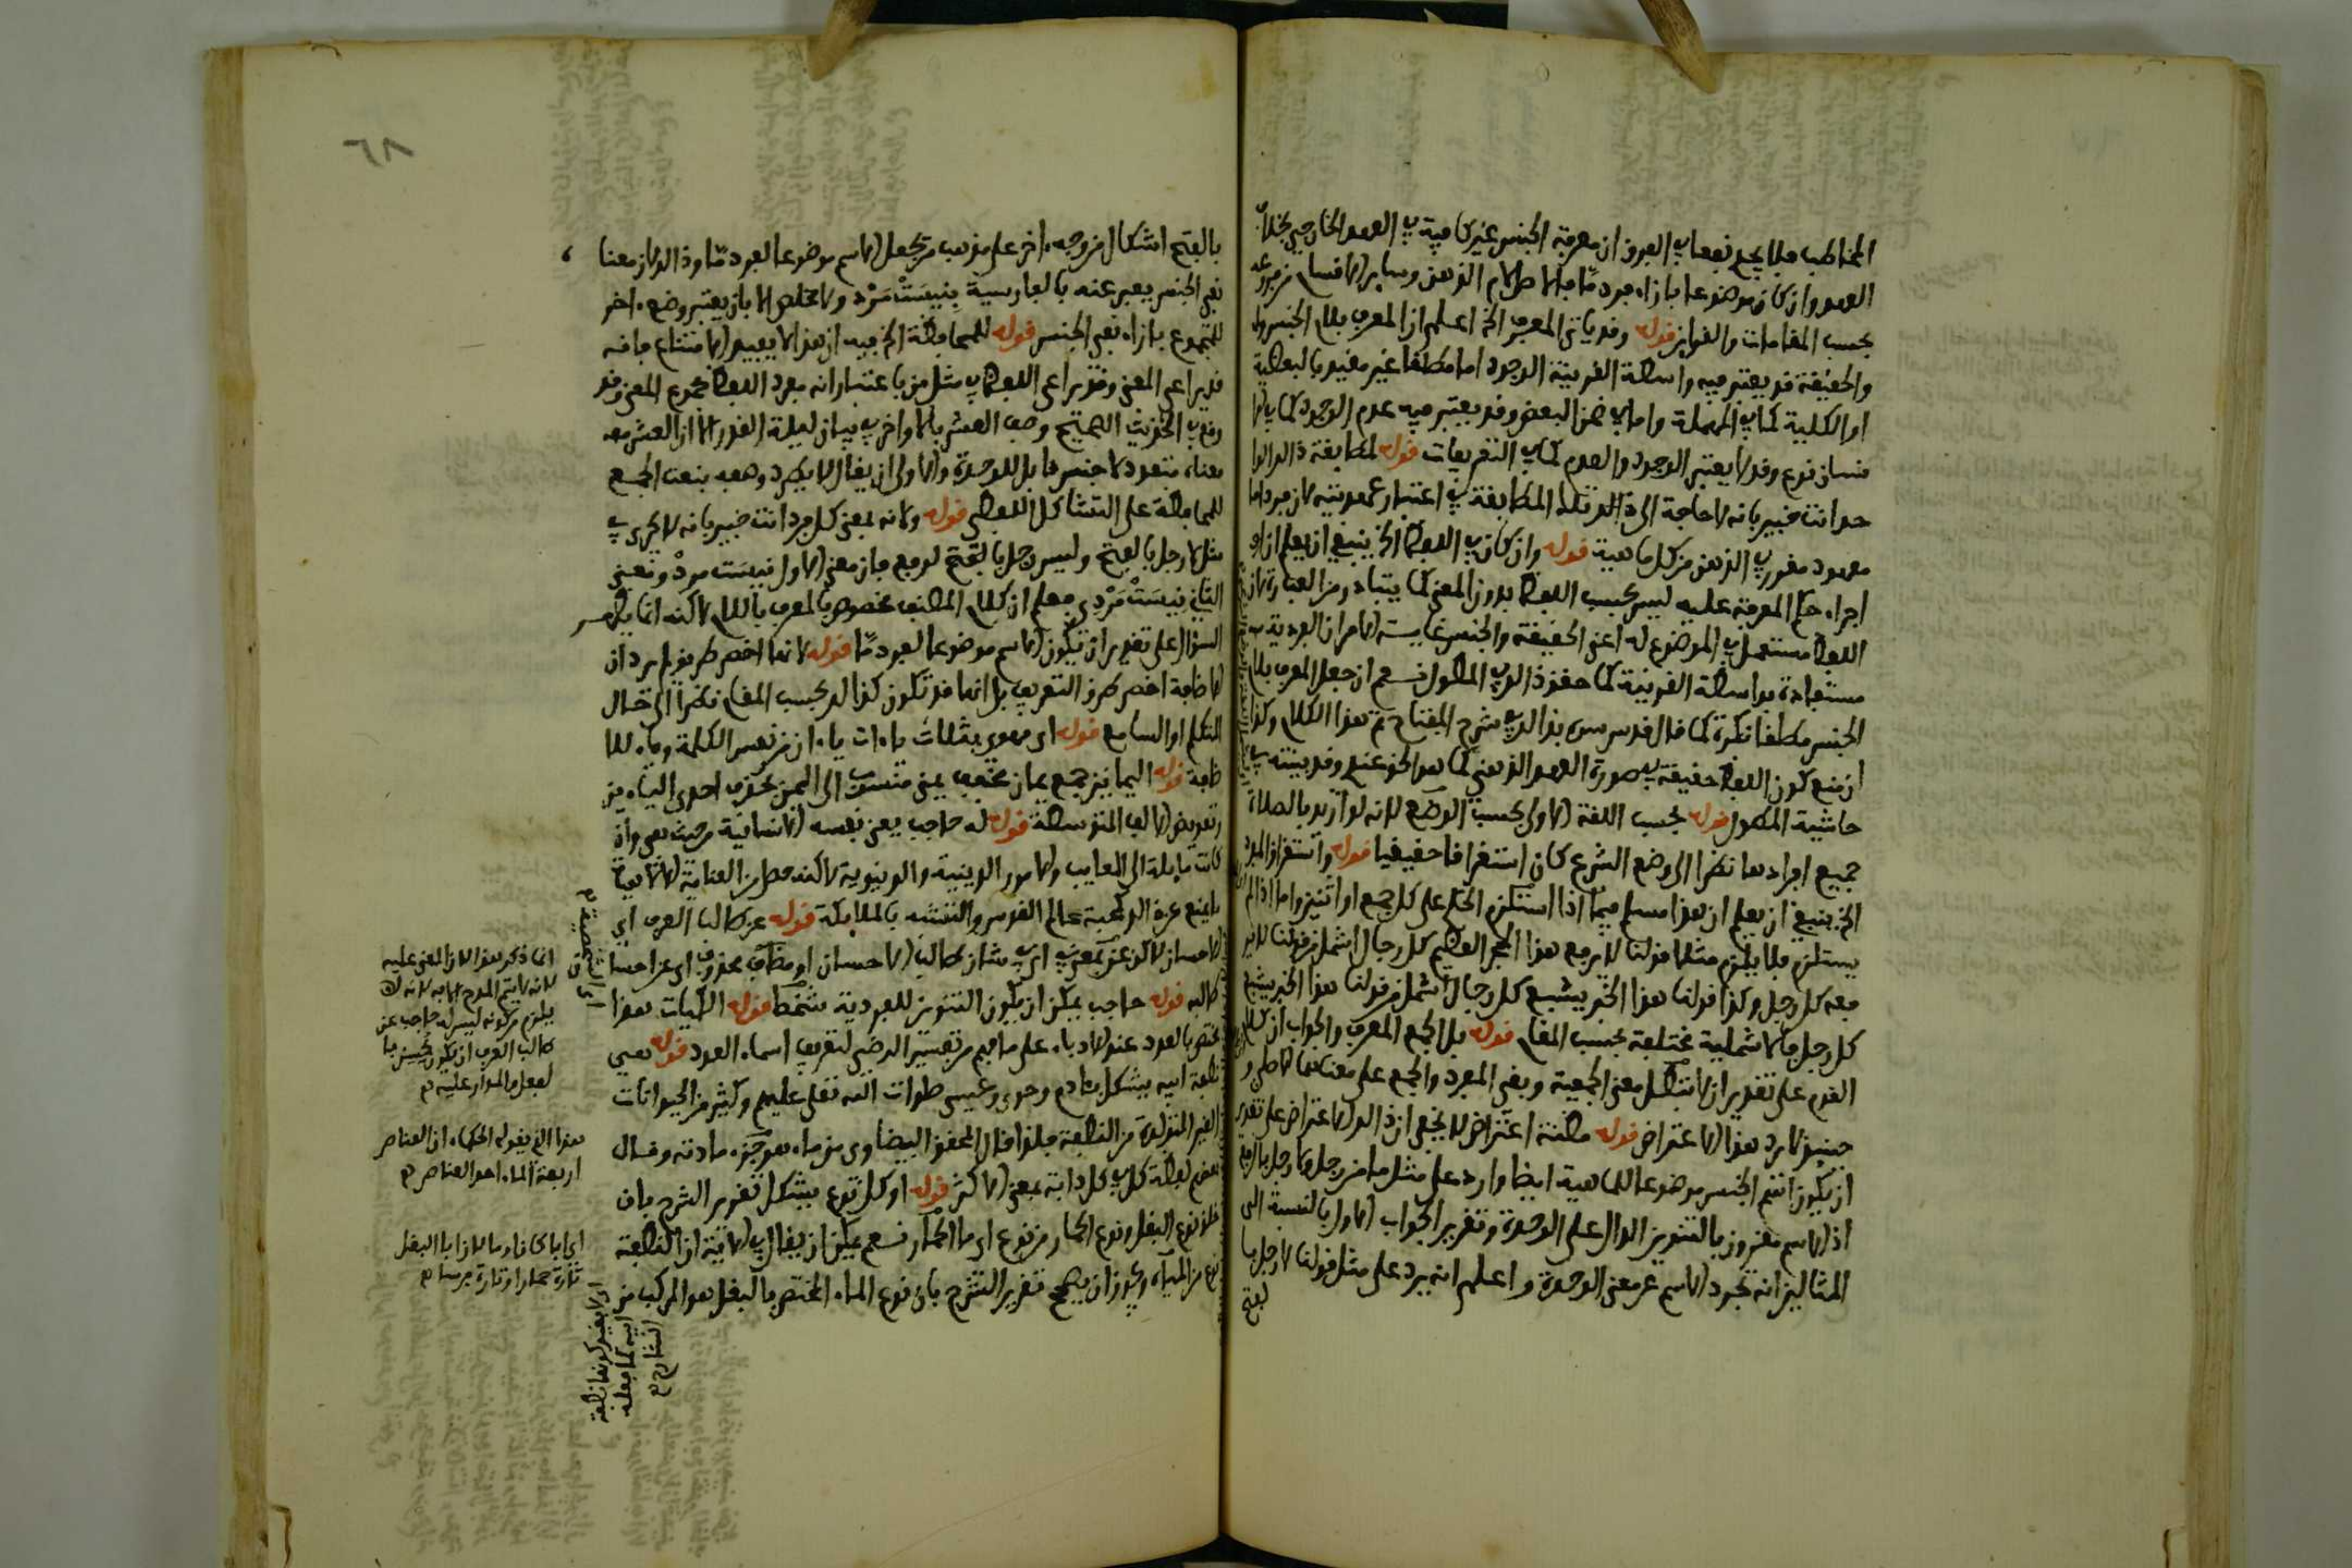 المخاطب فلا يجد نفعا في الفرق ان معرفة الجنس غير كافية في العهد الخارجي بخلاف
العهد وان كان موضوعا بازاء فرد ما فالاصل لام الذهن وساير الاقسام من فروعه
بحسب المقامات والقراين قوله وقد ياتي المعرف الخ اعلم ان المعرف بلام الجنس
والحقيقة قد يعتبر فيه واسطة القرينة الوجود اما مطلقا غير مقيد بالبعضية
او الكلية كما في المهملة واما في ضمن البعض وقد يعتبر فيه عدم الوجود كما في
وقد لا يعتبر الوجود والعدم كما في التعريفات قوله لمطابقة ذلك
انت خبير بانه لا حاجة الى تلك المطابقة في اعتبار عهديته لان فردا ما
معهود مقرر في الذهن من كل ماهية قوله وان كان في اللفظ الخ ينبغي ان يعلم ان
اجراء حكم المعرفة عليه ليس بحسب اللفظ بدون المعنى كما يتبادر من العبارة لان
اللفظ مستعمل في الموضوع له اعني الحقيقة والجنس غاية الامر ان الفردية
مستفادة بواسطة القرينة كما حقق ذلك في المطول نعم ان جعل المعرف بلام
الجنس مطلقا نكرة كما قال قدس سره بذلك في شرح المفتاح تم هذا الكلام وكذا
ان منع كون اللفظ حقيقة في صورة العهد الذهني كما هو الحق عندي وقد بينته في
حاشية المطول قوله بحسب اللغة الاولى بحسب الوضع لانه لو اريد بالصلاة
جميع افرادها نظرا الى وضع الشرع كان استغراقا حقيقيا قوله واستغراق المفرد
الخ ينبغي ان يعلم ان هذا مسلم فيما اذا استلزم الحكم على كل جمع او اثنين واما اذا لم
يستلزم فلا يلزم مثلا قولنا لا يرفع هذا الحجر العظيم كل رجال اشمل من قولنا لا يرفع
معه كل رجل وكذا قولنا هذا الخبز يشبع كل رجال اشمل من قولنا هذا الخبز يشبع
كل رجل فالاشملية مختلفة بحسب المقام قوله بل الجمع المعرف والجواب ان كلام
القوم على تقدير ان لا تبطل معنى الجمعية وبقى المفرد والجمع على معناهما الاصلي و
حينئذ لا يرد هذا الاعتراض قوله مظنة اعتراض لا يخفى ان ذلك الاعتراض على تقدير
ان يكون اسم الجنس موضوعا للماهية ايضا وارد على مثل ما من رجل ولا رجل بالرفع
اذ الاسم مقرون بالتنوين الدال على الوحدة وتقرير الجواب الاول بالنسبة الى
المثالين انه تجرد الاسم عن معنى الوحدة واعلم انه يرد على مثل قولنا لا رجل با
لفتح
٦٨
بالفتح اشكال من وجه اخر على مذهب من يجعل الاسم موضوعا لفرد ما وذلك لان معناه
نفي الجنس يعبر عنه بالفارسية بنيست مرد ولا مخلص الا بان يعتبر وضع اخر
للمجموع بازاء نفي الجنس قوله للمحافظة الخ فيه ان هذا لا يفيد الامتناع فانه
قد يراعى المعنى وقد يراعى اللفظ في مثل من باعتبار انه مفرد اللفظ مجموع المعنى وقد
وقع في الحديث الصحيح وصف العشر بالاواخر في بيان ليلة القدر الا ان العشر
معناه متعدد لا جنس قابل للوحدة والاولى ان يقال لا يطرد وصفه بنعت الجمع
للمحافظة على التشاكل اللفظي قوله ولانه بمعنى كل فرد انت خبير بانه لا يجري في
مثل لا رجل بالفتح وليس رجل بالفتح لرفع فان معنى الاول نيست مرد ومعنى
الثاني نيست مردي فعلم ان كلام المصنف مخصوص بالمعرف باللام لاكنه انما يظهر
السؤال على تقدير ان يكون الاسم موضوعا لفرد ما قوله لانها اخصر طريق لم يرد ان
الاضافة اخصر طرق التعريف بل انها قد تكون كذلك بحسب المقام نظرا الى حال
المتكلم او السامع قوله اي مهوي بثلاث ياءات ياءان من نفس الكلمة وياء للا
ضافة قوله اليمانين جمع يمان مخفف يمني منسوب الى اليمن بحذف احدى الياءين
وتعويض الالف المتوسطة قوله له حاجب يعني نفسه الانسانية من حيث هي وان
كانت مايلة الى المعايب والامور الدينية والدنيوية لاكنه حصل من العناية الالاهية
مانع عن ذلك محبة عالم القدس والتشبه بالملايكة قوله عن طالب العرف اي
الاحسان لاكن عن بمعنى في اي في شان طالب الاحسان او مضاف محذوف اي عن احسان
طالبه قوله حاجب يمكن ان يكون التنوين للفردية شخصا قوله الكميات هذا
مختص بالعدد عند الادباء على ما فهم من تفسير الرضي لتعريف اسماء العدد قوله هي
نطفة ابيه يشكل بآدم وحوى وعيسى صلوات الله تعلى عليهم وكثير من الحيوانات
الغير المتولدة من النطفة فلذا قال المحقق البيضاوي من ماء هو جزء مادته وقال
بعضهم لفظة كل في كل دابة بمعنى الاكثر قوله او كل نوع يشكل تقرير الشرح بان
خلق نوع البغل ونوع الحمار من نوع اي ماء الحمار نعم يمكن ان يقال في الاية ان النطفة
نوع من المياه ويجوز ان يصح تقرير الشرح بان نوع الماء المختص بالبغل هو المركب من
انما ذكر هذا لان المعنى عليه
لانه لا يتم المدح الا به لانه لا
يلزم من كونه ليس له حاجب عن
طالب العرف ان يكون يحسن
لفعل والمدار عليه
هذا الذي يقوله الحكماء ان العناصر
اربعة الماء احد العناصر
اي ايا كان اد ما لان ابا البغل
تارة حمارا وتارة فرسا
بغير كونها نطفة
ابيه كما فعله
الشارح